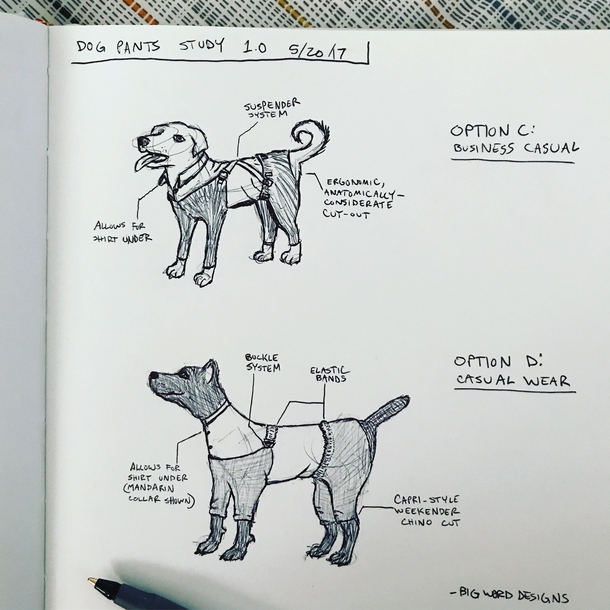 DOG PANTS STUDY 1.0 5/20/17
SUSPENDER
SYSTEM
OPTION C:
BUSINESS CASUAL
ERGONOMIC,
ANATOMICALLY-
CONSIDERATE
CUT-OUT
ALLOWS FOR
SHIRT UNDER
BUCKLE
SYSTEM
ELASTIC
BANDS
OPTION D:
CASUAL WEAR
ALLOWS FOR
SHIRT UNDER
(MANDARIN
COLLAR SHOWN)
CAPRI-STYLE
WEEKENDER
CHINO CUT
-BIG WORD DESIGNS